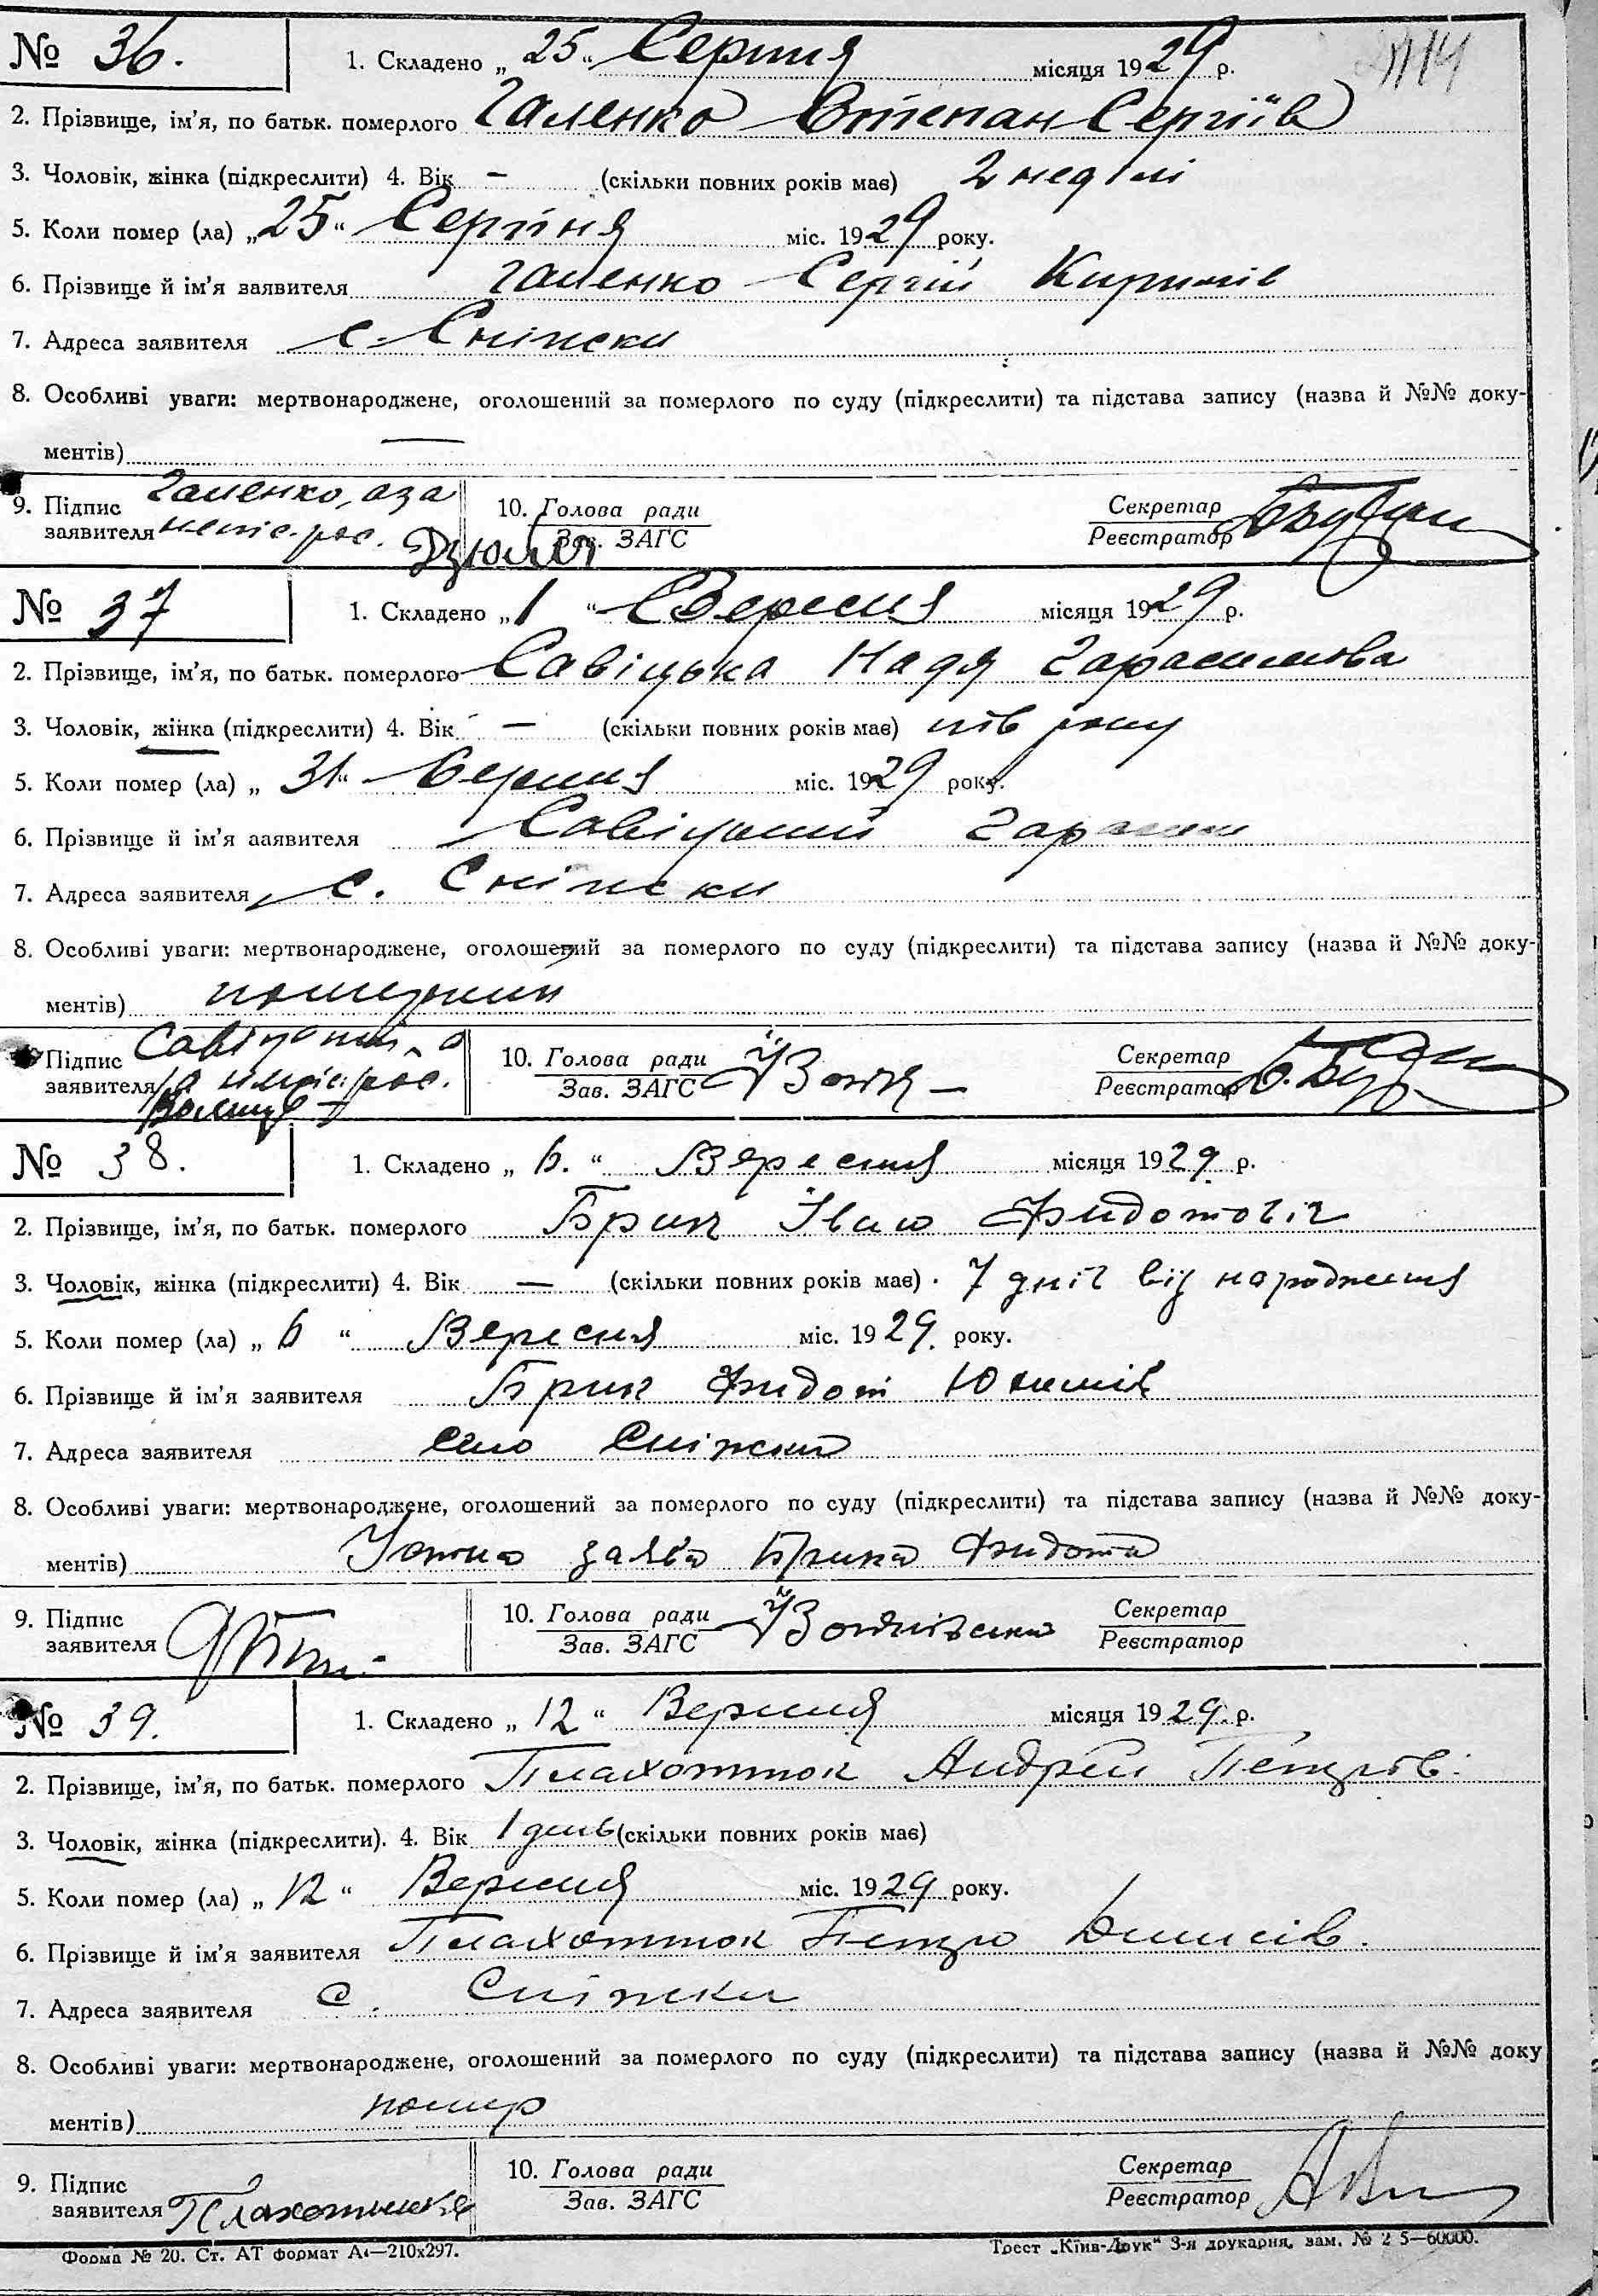 № 36. 1. Складено „25“ Серпня місяця 1929 р.
2. Прізвище, ім'я, по батьк. померлого Галенко Степан Сергіїв
3. Чоловік, жінка (підкреслити) 4. Вік — (скільки повних років має) 2 неділі
5. Коли помер (ла) „25“ Серпня міс. 1929 року.
6. Прізвище й ім'я заявителя Галенко Сергій Кирилів
7. Адреса заявителя с. Сніжки
8. Особливі уваги: мертвонароджене, оголошений за померлого по суду (підкреслити) та підстава запису (назва й №№ доку-
ментів) —
9. Підпис заявителя Галенко, а за непис. рос. 10. Голова ради Зав. ЗАГС Секретар Реєстратор
№ 37 1. Складено „1“ Вересня місяця 1929 р.
2. Прізвище, ім'я, по батьк. померлого Савіцька Надя Гарасимова
3. Чоловік, жінка (підкреслити) 4. Вік — (скільки повних років має) пів року
5. Коли помер (ла) „31“ Серпня міс. 1929 року.
6. Прізвище й ім'я заявителя Савіцький Гарасим
7. Адреса заявителя с. Сніжки
8. Особливі уваги: мертвонароджене, оголошений за померлого по суду (підкреслити) та підстава запису (назва й №№ доку-
ментів)
Підпис заявителя Савіцький, а за непис. рос. 10. Голова ради Зав. ЗАГС Секретар Реєстратор
№ 38. 1. Складено „6.“ Вересня місяця 1929. р.
2. Прізвище, ім'я, по батьк. померлого Брик Іван Фидотовіч
3. Чоловік, жінка (підкреслити) 4. Вік — (скільки повних років має) 7 днів від народження
5. Коли помер (ла) „6“ Вересня міс. 1929. року.
6. Прізвище й ім'я заявителя Брик Фидот
7. Адреса заявителя село Сніжки
8. Особливі уваги: мертвонароджене, оголошений за померлого по суду (підкреслити) та підстава запису (назва й №№ доку-
ментів) Устна заява Брика Фидота
9. Підпис заявителя 10. Голова ради Зав. ЗАГС Секретар Реєстратор
№ 39. 1. Складено „12“ Вересня місяця 1929. р.
2. Прізвище, ім'я, по батьк. померлого Плахотнюк Андрій Петрів.
3. Чоловік, жінка (підкреслити). 4. Вік 1 день (скільки повних років має)
5. Коли помер (ла) „12“ Вересня міс. 1929 року.
6. Прізвище й ім'я заявителя Плахотнюк Петро Денисів.
7. Адреса заявителя с. Сніжки
8. Особливі уваги: мертвонароджене, оголошений за померлого по суду (підкреслити) та підстава запису (назва й №№ доку
ментів) помер
9. Підпис заявителя 10. Голова ради Зав. ЗАГС Секретар Реєстратор
Форма № 20. Ст. АТ формат А4—210х297. Трест „Київ-Друк“ 3-я друкарня, зам. № 2 5—60000.